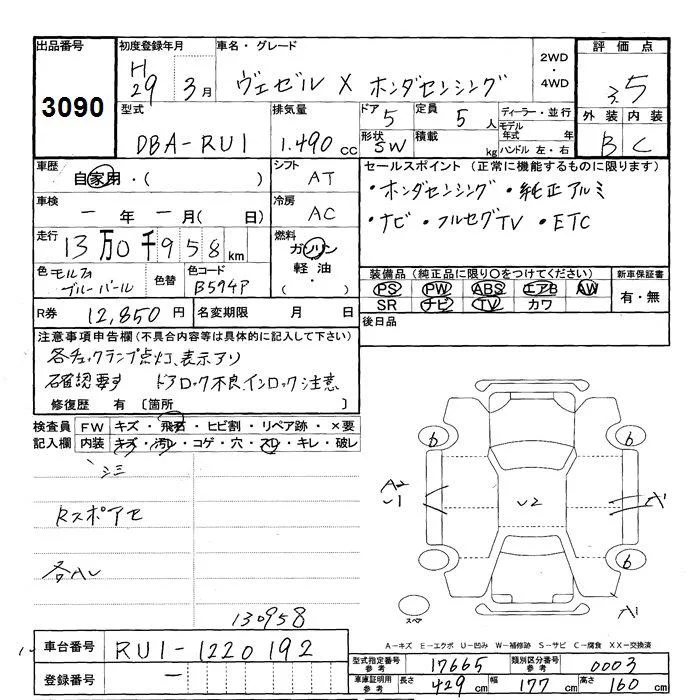 出品番号 初度登録年月 車名・グレード 2WD・4WD 評価点
3090 H29 3月 ヴェゼル X ホンダセンシング 3.5
型式 排気量 ドア 5 定員 5人 ディーラー・並行 外装 内装
DBA-RU1 1.490cc 形状 SW 積載 kg モデル年式 年 B C
ハンドル 左・右
車歴 自家用・( ) シフト AT セールスポイント (正常に機能するものに限ります)
・ホンダセンシング ・純正アルミ
車検 ー年 ー月( 日) 冷房 AC ・ナビ ・フルセグTV ・ETC
走行 13万0千958km 燃料 ガソリン 軽油・( )
装備品 (純正品に限り○をつけてください) 新車保証書
色 モルフォブルーパール 色替 色コード B594P PS PW ABS エアB AW 有・無
SR ナビ TV カワ
R券 12,850円 名変期限 月 日 後日品
注意事項申告欄(不具合内容等は具体的に記入して下さい)
各チェックランプ点灯、表示アリ
確認要す ドアロック不良インロック注意
修復歴 有 〔箇所 〕
検査員 FW キズ・飛石・ヒビ割・リペア跡・×要
記入欄 内装 キズ・汚レ・コゲ・穴・スレ・キレ・破レ
シミ
Rスポアセ
各ハレ
130958
6 6
A2 U1 U2 A1
6 6
スペア A1
A-キズ E-エクボ U-凹み W-補修跡 S-サビ C-腐食 XX-交換済
車台番号 RU1-1220192
型式指定番号 参考 17665 類別区分番号 参考 0003
登録番号 ー 車庫証明用 参考 長さ 429cm 幅 177cm 高さ 160cm